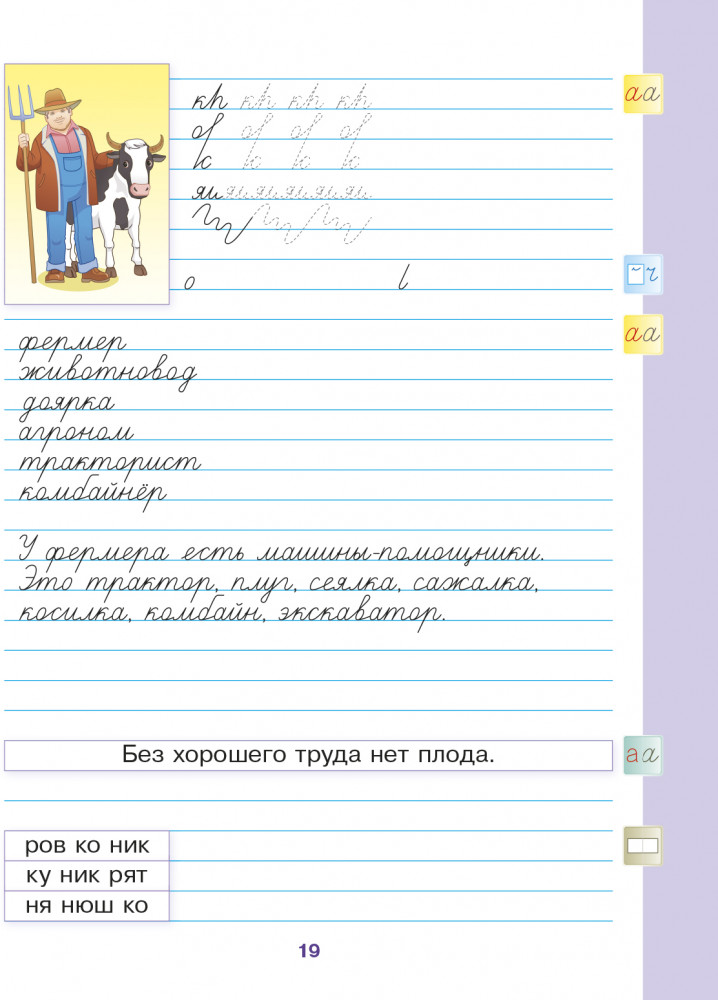 а а
ч
о
а а
фермер
животновод
доярка
агроном
тракторист
комбайнёр
У фермера есть машины-помощники.
Это трактор, плуг, сеялка, сажалка,
косилка, комбайн, экскаватор.
Без хорошего труда нет плода.
а а
ров ко ник
ку ник рят
ня нюш ко
19